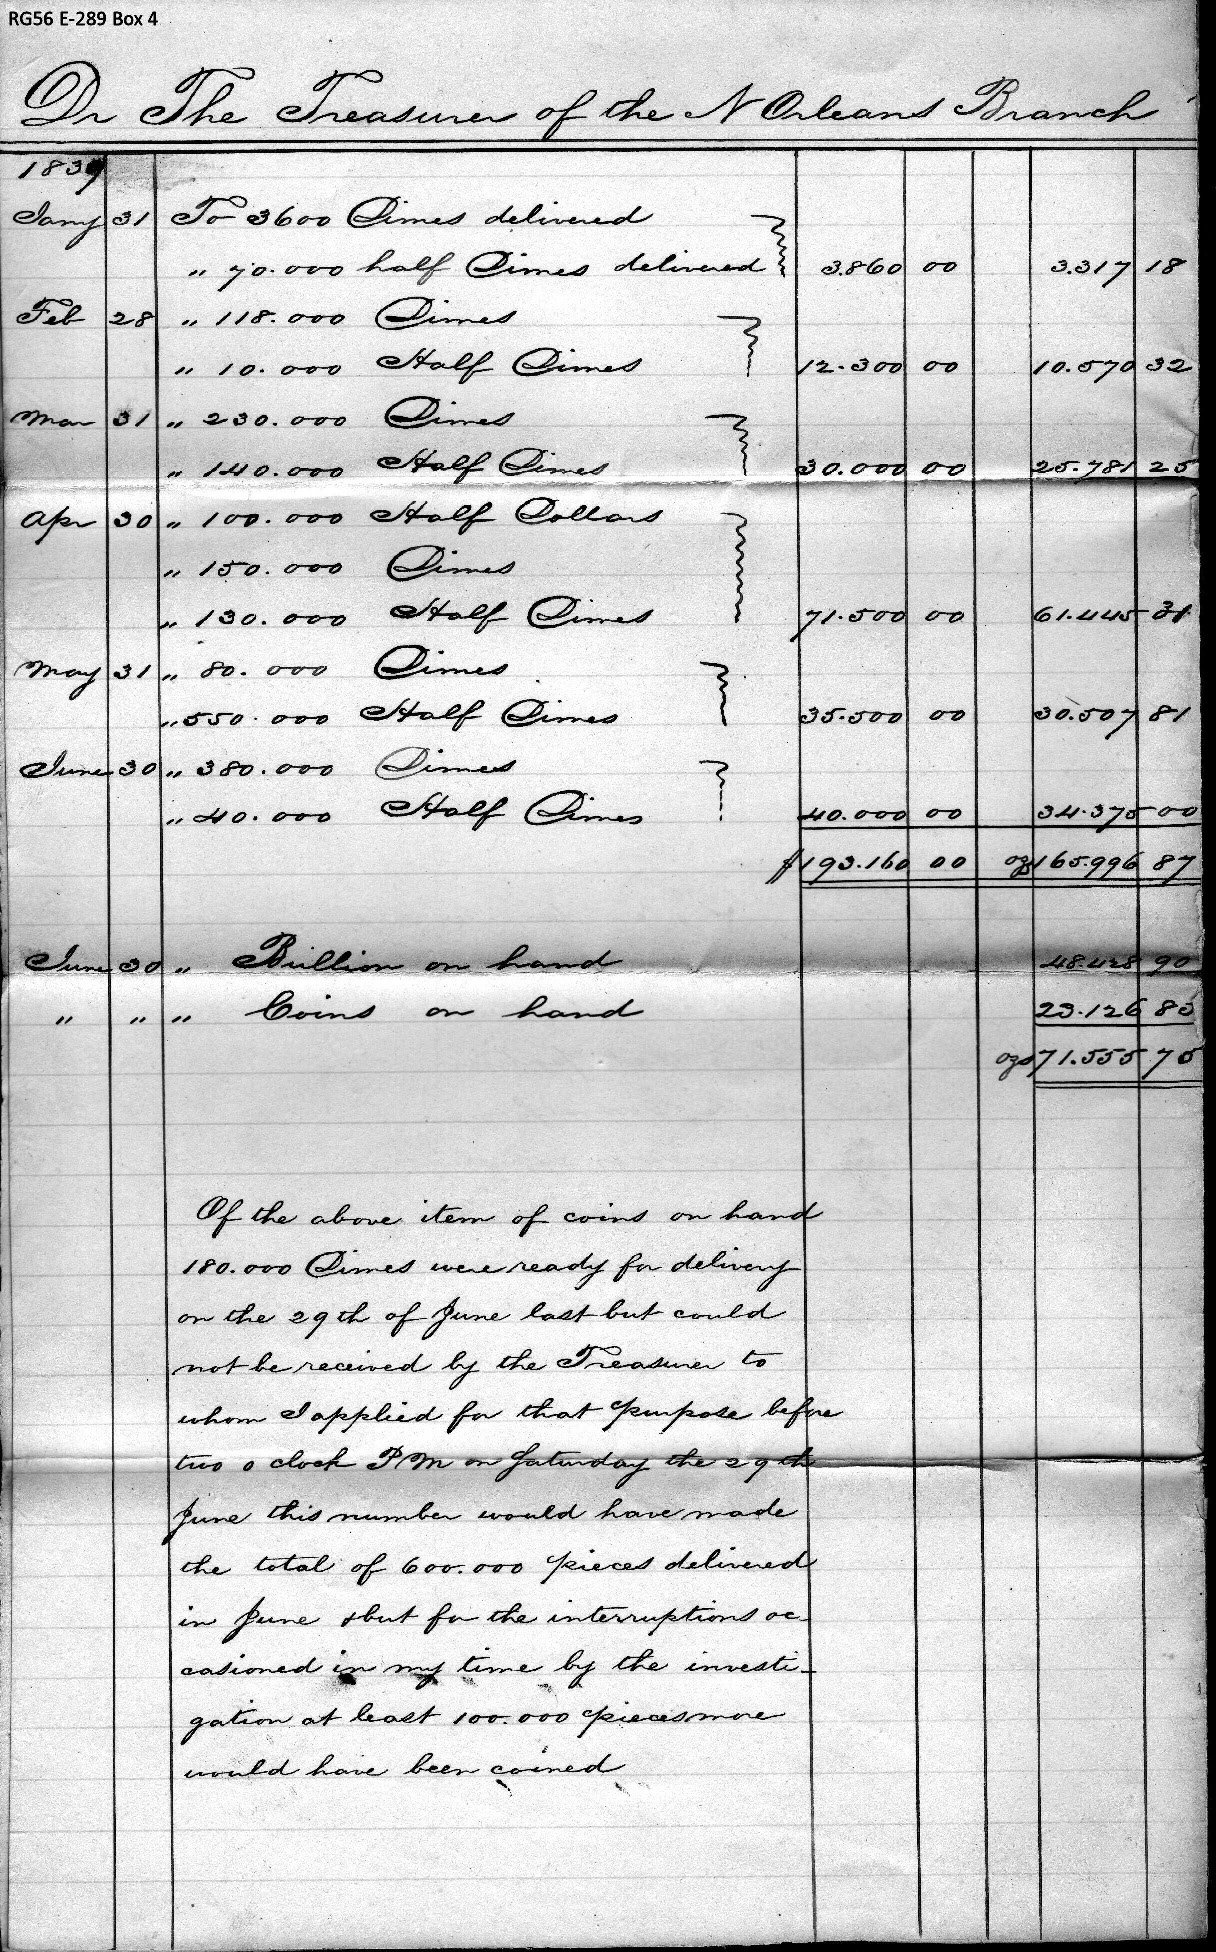 RG56 E-289 Box 4
Dr The Treasurer of the N Orleans Branch
1839
Jany 31 To 3600 Dimes delivered
" 70.000 half Dimes delivered 3.860 00 3.317 18
Feb 28 " 118.000 Dimes
" 10.000 Half Dimes 12.300 00 10.570 32
Mar 31 " 230.000 Dimes
" 140.000 Half Dimes 30.000 00 25.781 25
Apr 30 " 100.000 Half Dollars
" 150.000 Dimes
" 130.000 Half Dimes 71.500 00 61.445 31
May 31 " 80.000 Dimes
" 550.000 Half Dimes 35.500 00 30.507 81
June 30 " 380.000 Dimes
" 40.000 Half Dimes 40.000 00 34.375 00
$193.160 00 ozs 165.996 87
June 30 " Bullion on hand 48.428 90
" " " Coins on hand 23.126 85
ozs 71.555 75
Of the above item of coins on hand
180.000 Dimes were ready for delivery
on the 29th of June last but could
not be received by the Treasurer to
whom I applied for that purpose before
two o clock PM on Saturday the 29th
June this number would have made
the total of 600.000 pieces delivered
in June & but for the interruptions oc-
casioned in my time by the investi-
gation at least 100.000 pieces more
would have been coined